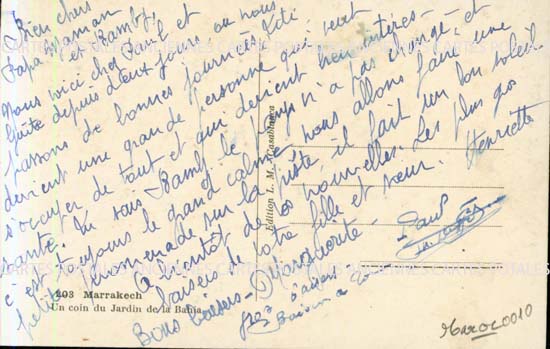 Bien chers
Papa, Maman
et Bamby,
Nous voici chez Paul et
depuis deux jours où nous
passons de bonnes journées. Kiki
devient une grande personne qui veut
s'occuper de tout et qui devient bien intéres-
sante. Tu sais Bamby le n'a pas changé et
c'est toujours le grand calme nous allons faire une
petite promenade sur la piste il fait un bon soleil.
A bientôt de vos nouvelles. Les plus gros
baisers de votre fille et sœur. Henriette
Bons baisers - Marguerite -
Paul
Edition L. M. Casablanca
203 Marrakech
Un coin du Jardin de la Bahia
Maroc0010
CARTES POSTALES ANCIENNES CARTES POSTALES